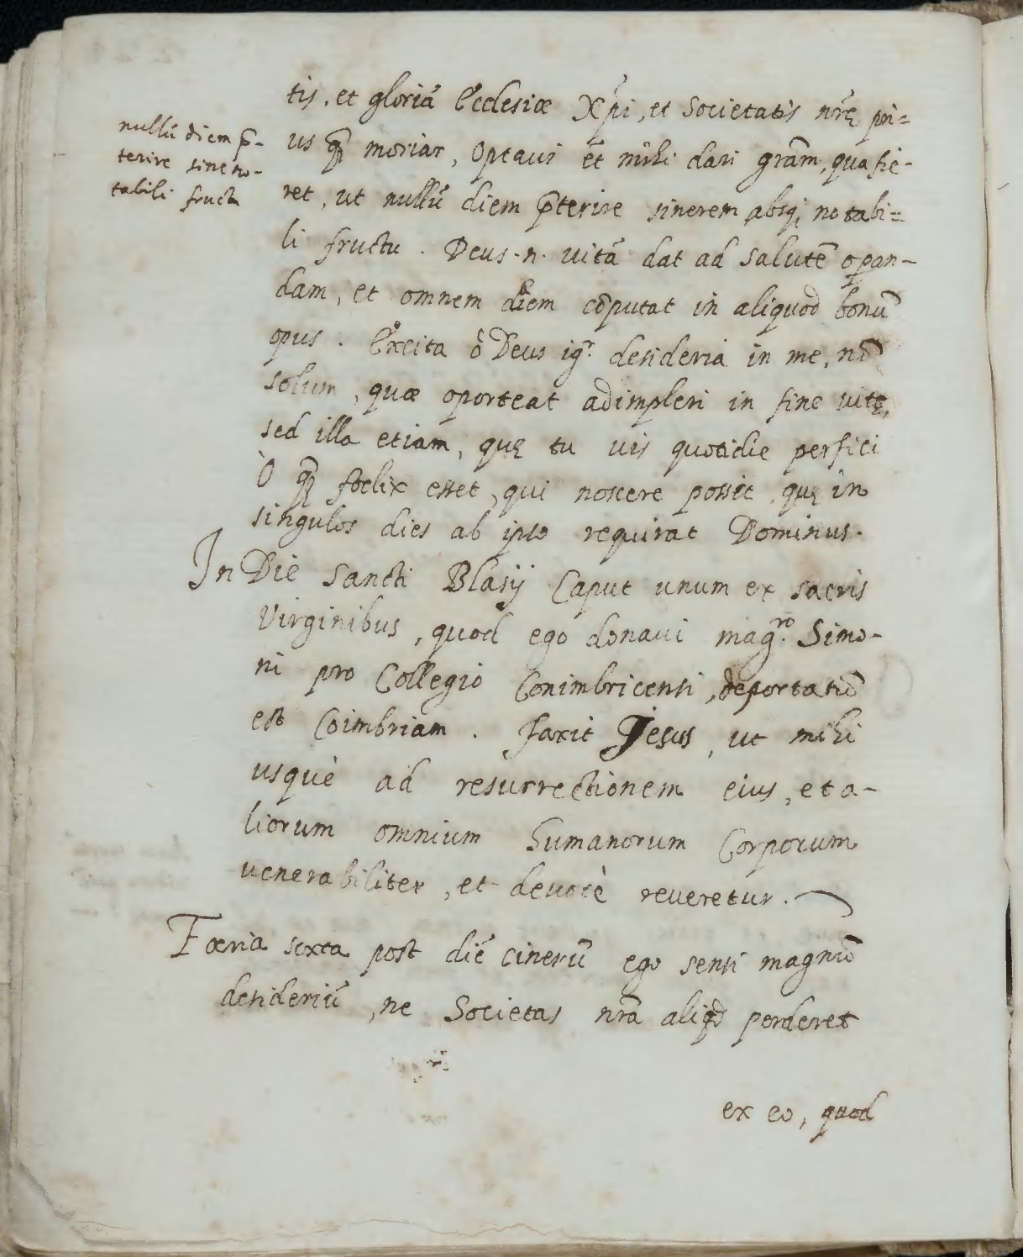 tis, et gloriã Ecclesiæ Xp̃i, et Societatis nr̃ę pri=
us q̃ moriar, Optaui et̃ mihi dari gram̃, qua fie-
ret, ut nullũ diem p̃terire sinerem absq; notabi=
li fructu. Deus .n. uitã dat ad salutẽ operan-
dam, et omnem diem cõputat in aliquod bonũ
opus. Excita ò Deus igr. desideria in me, nõ
solum, quæ oporteat adimpleri in fine uitę,
sed illa etiam, quę tu uis quotidie perfici
O q̃ foelix esset, qui noscere possit, quę in
singulos dies ab ipso requirat Dominus.
nullũ diem p̃-
terire sine no-
tabili fructu
In Die Sancti Blasij Caput unum ex sacris
Virginibus, quod ego donaui magro. Simo-
ni pro Collegio Conimbricensi, deportatũ
est Coimbriam. Faxit Jesus, ut mihi
usquè ad resurrectionem eius, et a-
liorum omnium humanorum Corporum
uenerabiliter, et deuotè reueretur.
Fœria sexta post diẽ cinerũ ego sensi magnũ
desideriũ, ne Societas nr̃a aliqd perderet
ex eo, quod